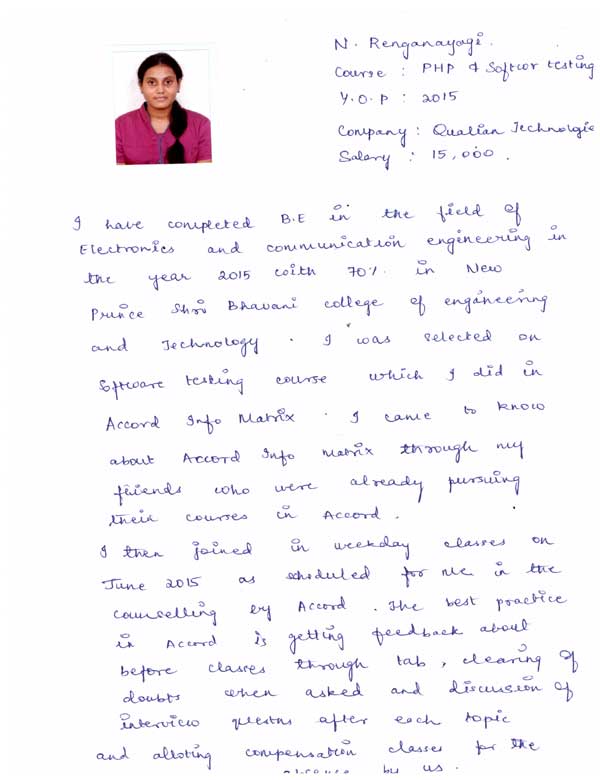 N. Renganayagi.
Course : PHP & Softwor testing
Y.O.P : 2015
Company : Qualian Technologie
Salary : 15,000.
I have completed B.E in the field of
Electronics and communication engineering in
the year 2015 with 70% in New
Prince Shri Bhavani college of engineering
and Technology. I was selected on
Software testing course which I did in
Accord Info Matrix. I came to know
about Accord Info matrix through my
friends who were already pursuing
their courses in Accord.
I then joined in weekday classes on
June 2015 as scheduled for me in the
counselling by Accord. The best practice
in Accord is getting feedback about
before classes through tab, clearing of
doubts when asked and discussion of
interview questns after each topic
and alloting compensation classes for the
absence by us.